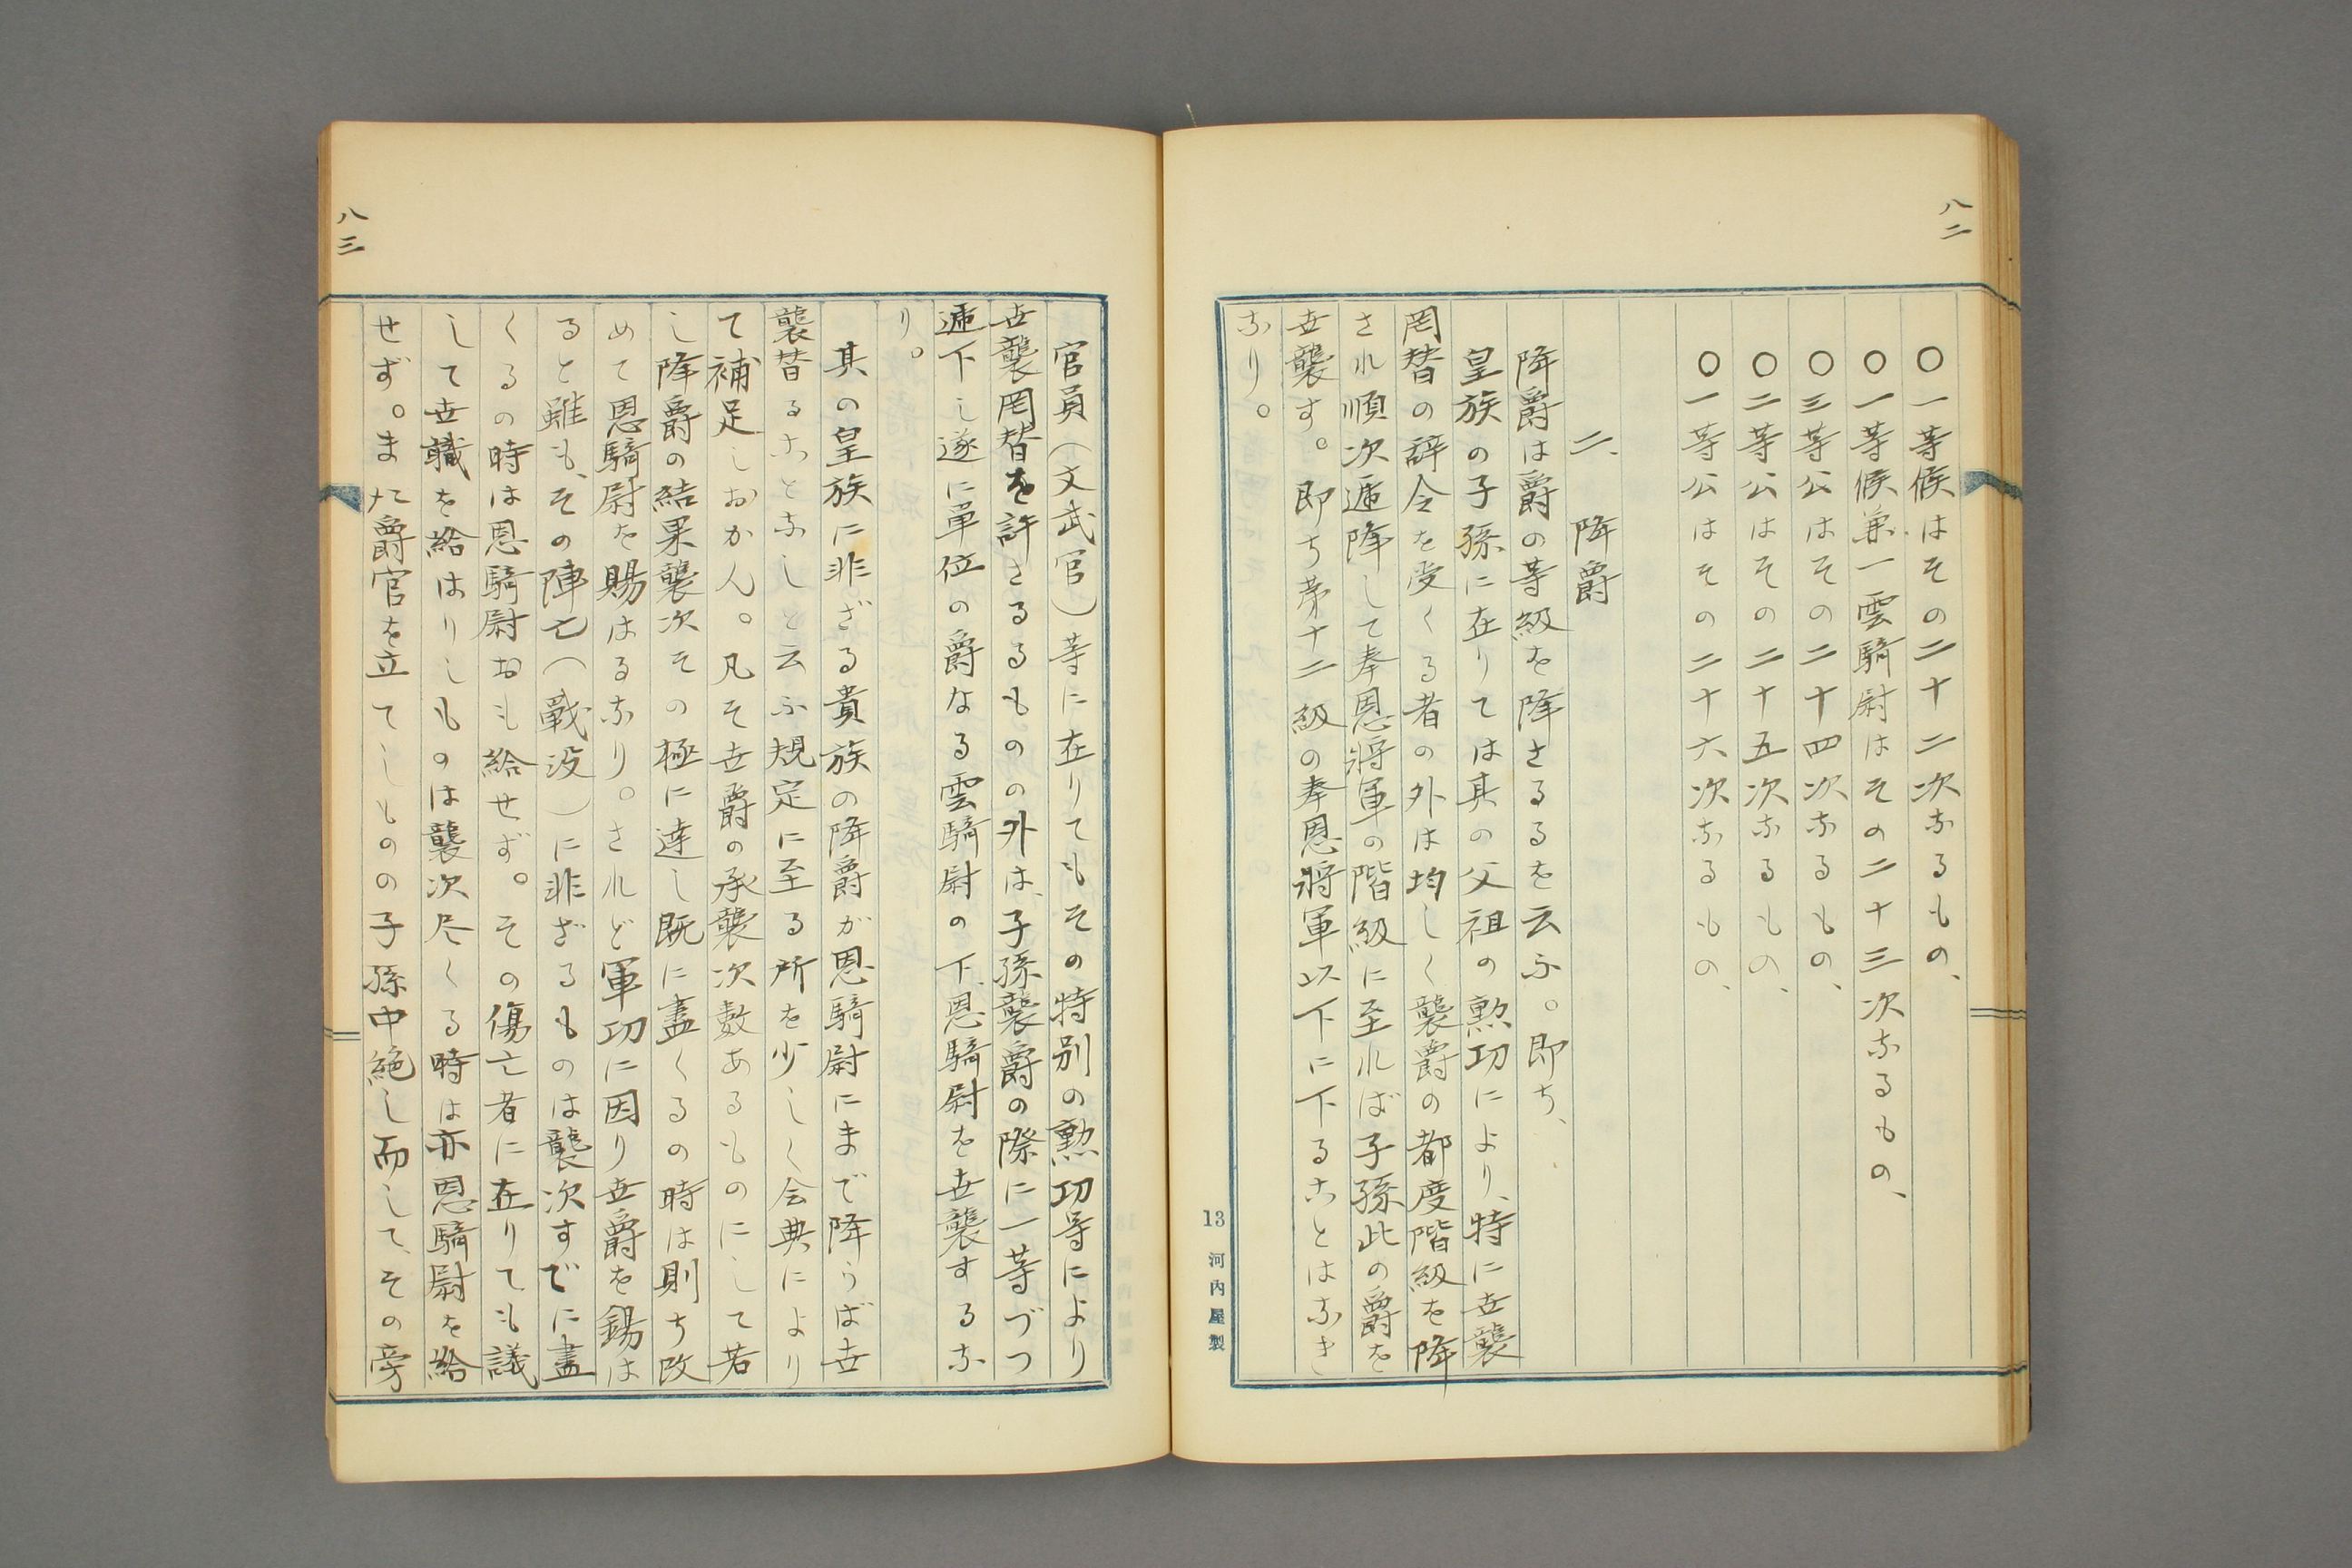 八二
〇一等候はその二十二次なるもの、
〇一等候兼一雲騎尉はその二十三次なるもの、
〇三等公はその二十四次なるもの、
〇二等公はその二十五次なるもの、
〇一等公はその二十六次なるもの、
二、降爵
降爵は爵の等級を降さるるを云ふ。即ち、
皇族の子孫に在りては其の父祖の勲功により、特に世襲
罔替の辞令を受くる者の外は均しく襲爵の都度階級を降
され順次遞降して奉恩将軍の階級に至れば子孫此の爵を
世襲す。即ち第十二級の奉恩将軍以下に下ることはなき
なり。
13 河内屋製
官員(文武官)等に在りてもその特別の勲功等により
世襲罔替を許さるるものの外は、子孫襲爵の際に一等づつ
遞下し遂に単位の爵なる雲騎尉の下、恩騎尉を世襲するな
り。
其の皇族に非ざる貴族の降爵が恩騎尉にまで降らば世
襲替ることなしと云ふ規定に至る所を少しく会典により
て補足しおかん。凡そ世爵の承襲次数あるものにして若
し降爵の結果襲次その極に達し既に盡くるの時は則ち改
めて恩騎尉を賜はるなり。されど軍功に因り世爵を錫は
ると雖も、その陣亡(戰没)に非ざるものは襲次すでに盡
くるの時は恩騎尉おも給せず。その傷亡者に在りても議
して世職を給はりしものは襲次尽くる時は亦恩騎尉を給
せず。また爵官を立てしものの子孫中絶し而して、その旁
八三